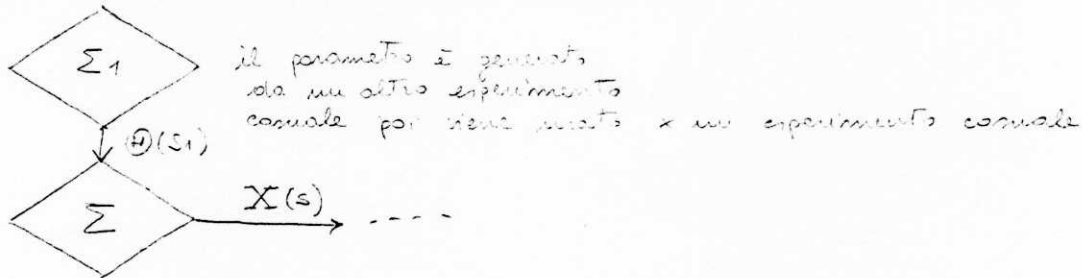 Σ1
il parametro è generato
da un altro esperimento
casuale poi viene usato x un esperimento casuale
Θ(S1)
Σ
X(s)